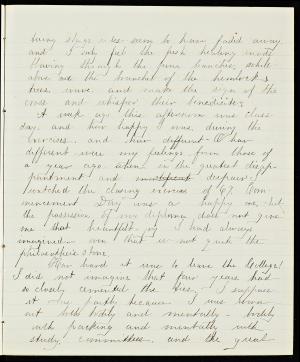 seem to have faded away
and I only feel the fresh healing winds
through the pine branches, while
above me the branches of the hemlock
trees wave and make the sign of the
cross and whisper their benedicite.
A week ago this afternoon was class
day, and how happy I was, during the
exercises. and how different - O how
different were my feelings from those of
a year ago when in the greatest disap-
pointment and despair I
watched the closing exercises of '87. Com-
mencement Day was a happy one, but
the possession of my diploma does not give
me that beautiful joy I had always
imagined - even that is not quite the
philosopher's stone.
How hard it was to leave the College!
I did not imagine that four years had
so closely cemented the ties. I suppose
it was partly because I was worn
out both bodily and mentally - bodily
with packing and mentally with
study, committees, and the great